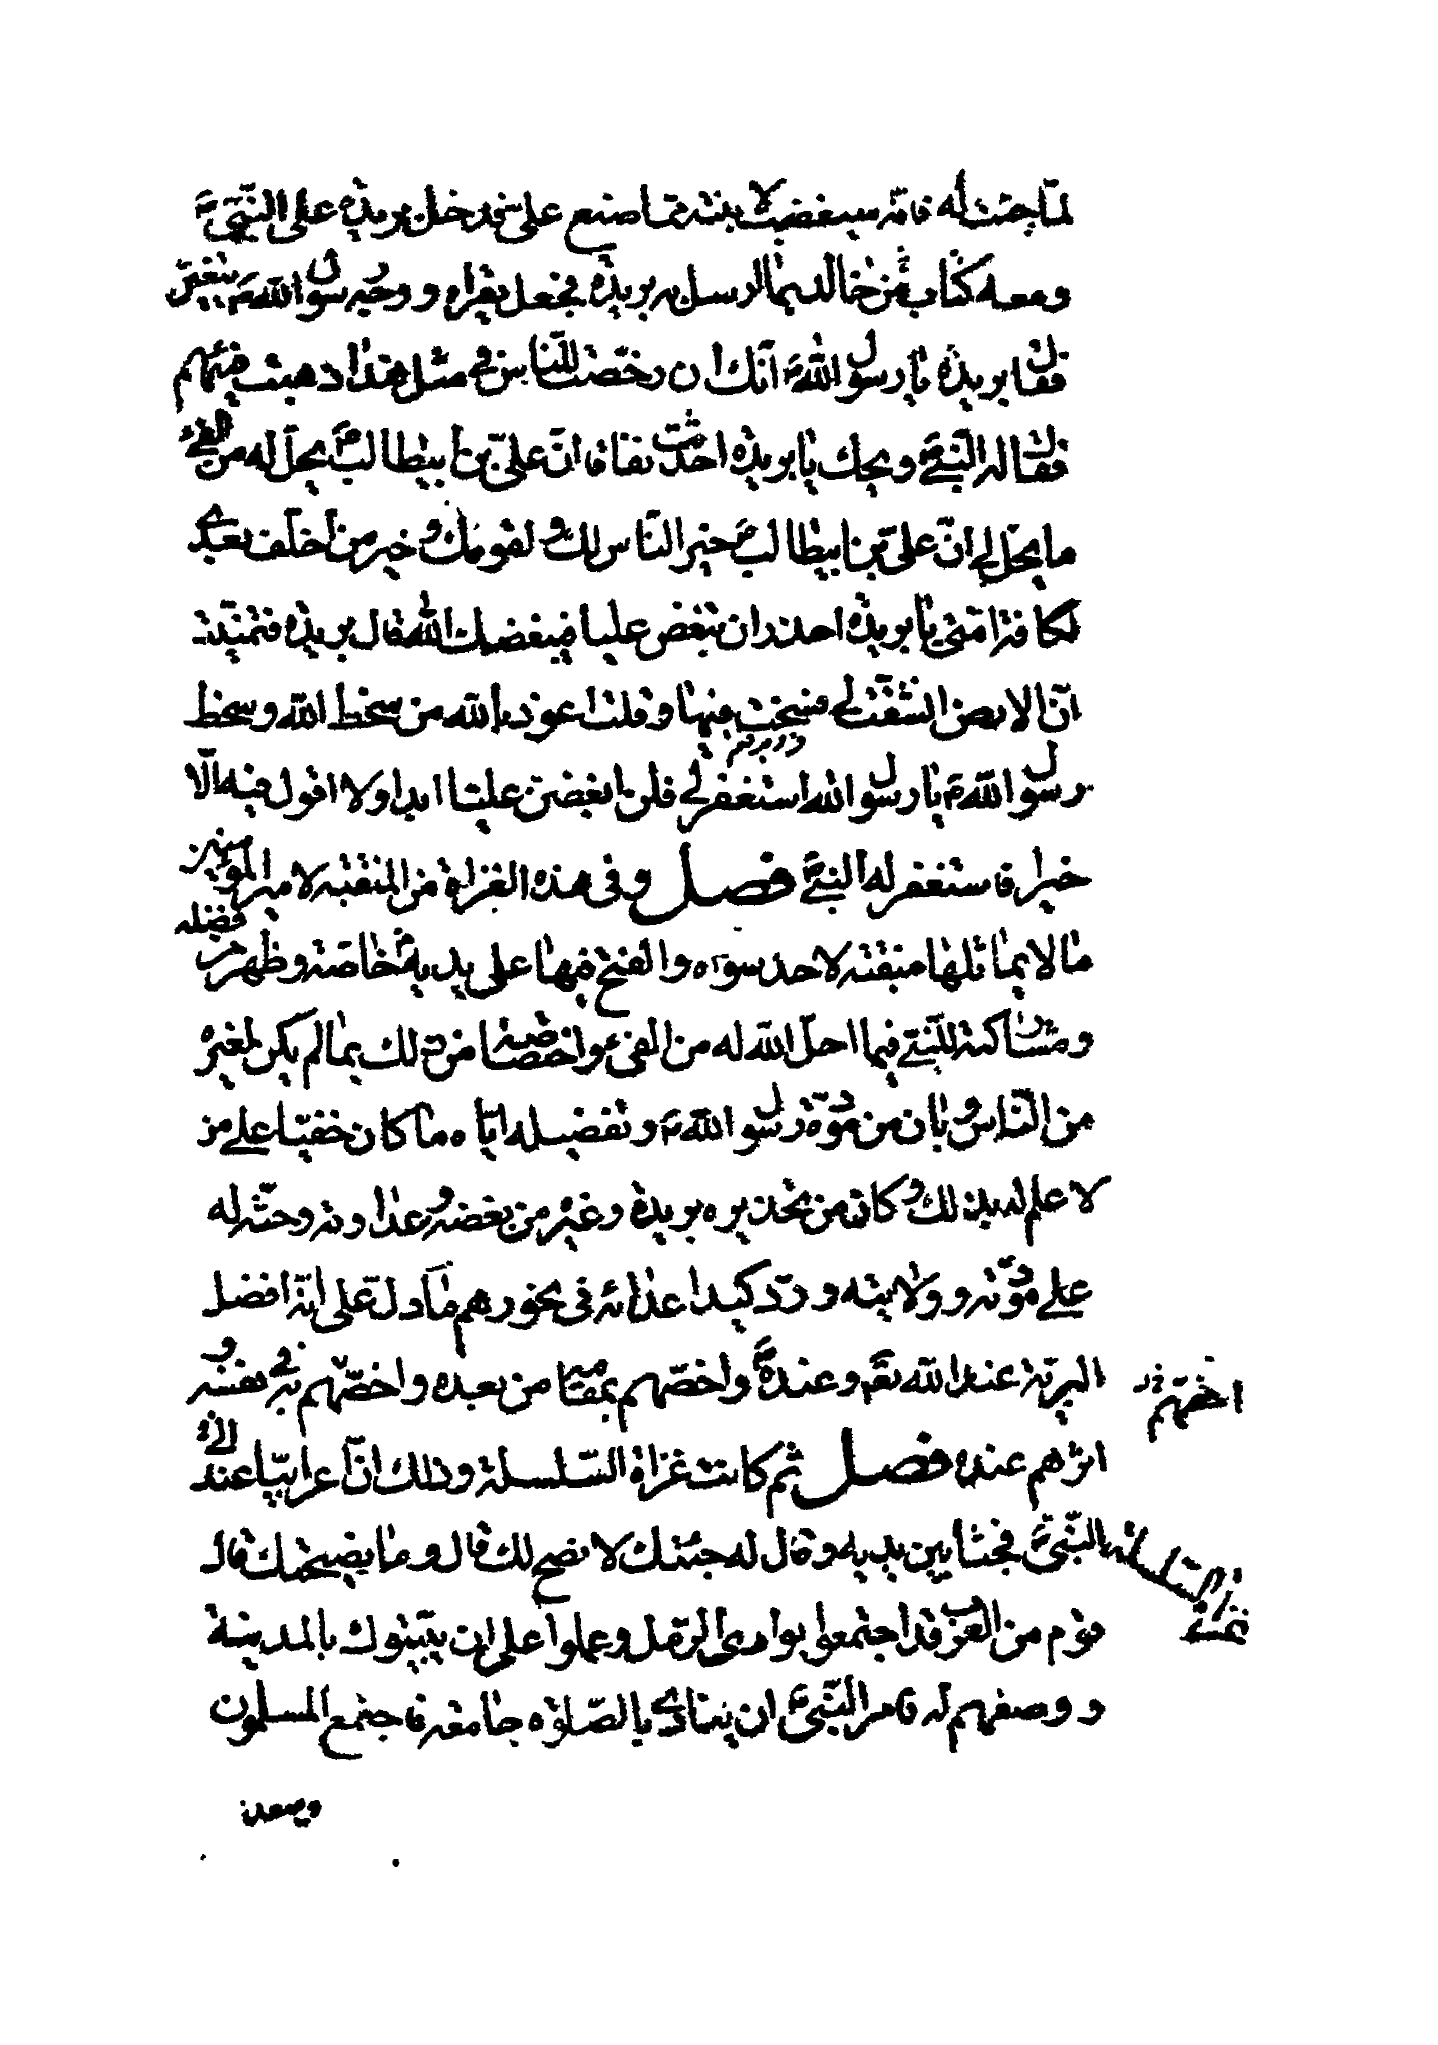 لما جئت له فانه سيغضب لابنته مما صنع علي فدخل بريده على النبي ص
ومعه كتاب من خالد بما ارسل به بريده فجعل يقراه ووجه رسول الله ص يتغير
فقال بريده يا رسول الله ص انك ان رخصت للناس في مثل هذا ذهب فيئهم
فقال له النبي ص ويحك يا بريده احدثت نفاقا ان علي بن ابيطالب ع يحل له من الفيء
ما يحل لي ان علي بن ابيطالب ع خير الناس لك ولقومك وخير من اخلف بعدي
لكافة امتي يا بريده احذر ان تبغض عليا فيبغضك الله قال بريده فتمنيت
ان الارض انشقت لي فسخت فيها وقلت اعوذ بالله من سخط الله وسخط
رسول الله ص يا رسول الله استغفر لي فلن ابغضن عليا ابدا ولا اقول فيه الا
خيرا فاستغفر له النبي ص فصل وفي هذه الغزاة من المنقبة لامير المؤمنين
ما لا يماثلها منقبة لاحد سواه والفتح فيها على يديه خاصة وظهر من فضله
ومشاركته للنبي فيما احل الله له من الفيء واختصاصه من ذلك بما لم يكن لغيره
من الناس وبان من مودة رسول الله ص وتفضيله اياه ما كان خفيا على من
لا علم له بذلك وكان من تحذيره بريدة وغيره من بغضه وعداوته وحثه له
على مودته وولايته ورد كيد اعدائه في نحورهم ما دل على انه افضل
البرية عند الله تع وعنده ص واحقهم بمقامه من بعده واخصهم به في نفسه و
اثرهم عنده فصل ثم كانت غزاة السلسلة وذلك ان اعرابيا عند الى
النبي ص فجثا بين يديه وقال له جئتك لانصح لك قال وما نصيحتك قال
قوم من العرب قد اجتمعوا بوادى الرمل وعملوا على ان يبيتوك بالمدينة
ووصفهم له فامر النبي ص ان ينادي بالصلوة جامعة فاجتمع المسلمون
وصعد